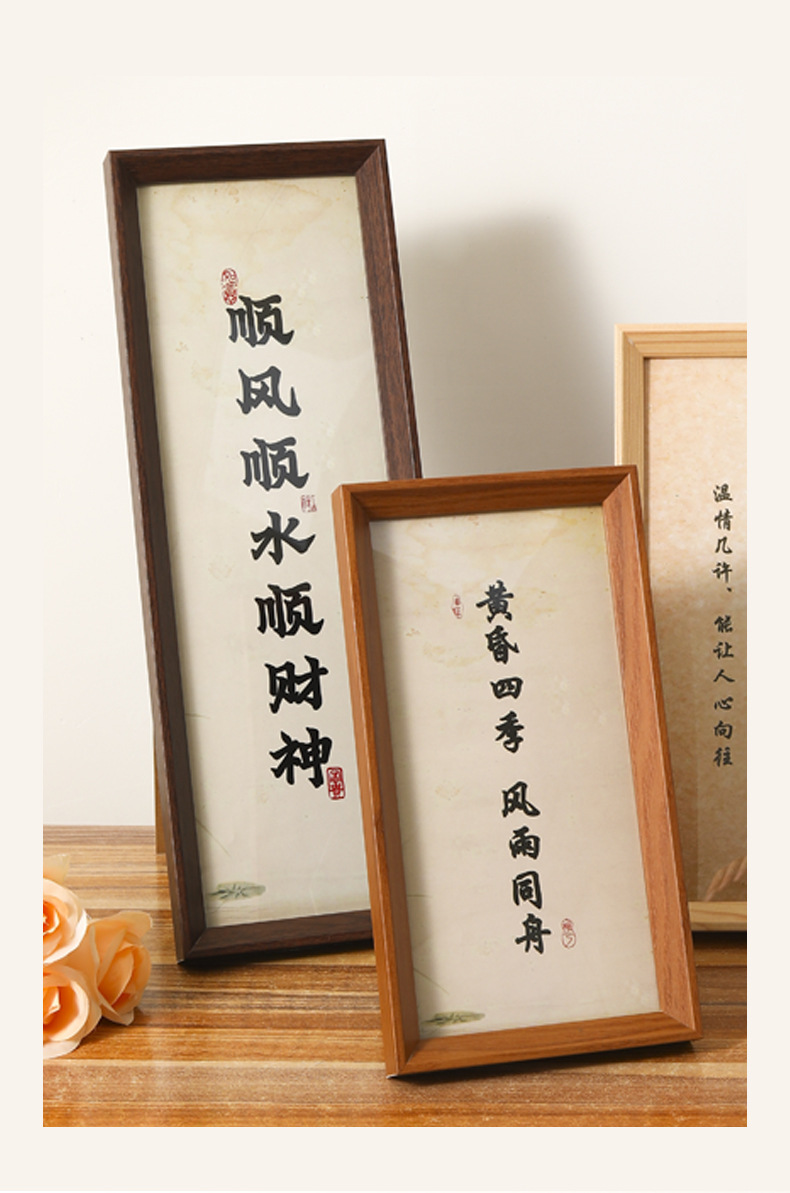 顺风顺水顺财神
黄昏四季 风雨同舟
温情几许、能让人心向往